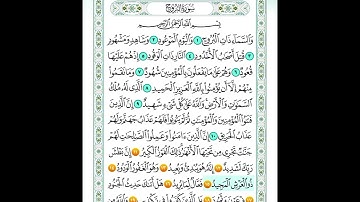 سُورَةُ البُرُوجِ
بِسْمِ اللَّهِ الرَّحْمَٰنِ الرَّحِيمِ
وَالسَّمَاءِ ذَاتِ الْبُرُوجِ ١ وَالْيَوْمِ الْمَوْعُودِ ٢ وَشَاهِدٍ وَمَشْهُودٍ
٣ قُتِلَ أَصْحَابُ الْأُخْدُودِ ٤ النَّارِ ذَاتِ الْوَقُودِ ٥ إِذْ هُمْ عَلَيْهَا
قُعُودٌ ٦ وَهُمْ عَلَىٰ مَا يَفْعَلُونَ بِالْمُؤْمِنِينَ شُهُودٌ ٧ وَمَا نَقَمُوا
مِنْهُمْ إِلَّا أَن يُؤْمِنُوا بِاللَّهِ الْعَزِيزِ الْحَمِيدِ ٨ الَّذِي لَهُ مُلْكُ
السَّمَاوَاتِ وَالْأَرْضِ وَاللَّهُ عَلَىٰ كُلِّ شَيْءٍ شَهِيدٌ ٩ إِنَّ الَّذِينَ
فَتَنُوا الْمُؤْمِنِينَ وَالْمُؤْمِنَاتِ ثُمَّ لَمْ يَتُوبُوا فَلَهُمْ عَذَابُ جَهَنَّمَ وَلَهُمْ
عَذَابُ الْحَرِيقِ ١٠ إِنَّ الَّذِينَ آمَنُوا وَعَمِلُوا الصَّالِحَاتِ لَهُمْ
جَنَّاتٌ تَجْرِي مِن تَحْتِهَا الْأَنْهَارُ ذَٰلِكَ الْفَوْزُ الْكَبِيرُ ١١ إِنَّ بَطْشَ
رَبِّكَ لَشَدِيدٌ ١٢ إِنَّهُ هُوَ يُبْدِئُ وَيُعِيدُ ١٣ وَهُوَ الْغَفُورُ الْوَدُودُ ١٤
ذُو الْعَرْشِ الْمَجِيدُ ١٥ فَعَّالٌ لِّمَا يُرِيدُ ١٦ هَلْ أَتَاكَ حَدِيثُ الْجُنُودِ